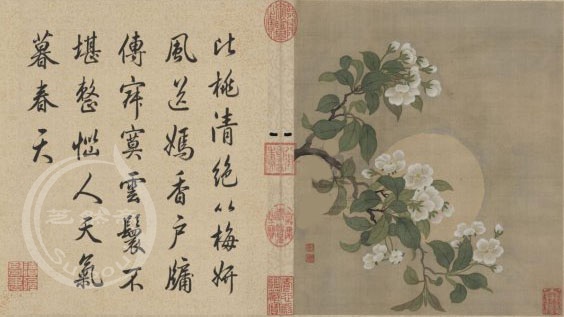 比桃清絕比梅妍
風送嫣香戶牖
傳寂寞雲鬟不
堪整惱人天氣
暮春天